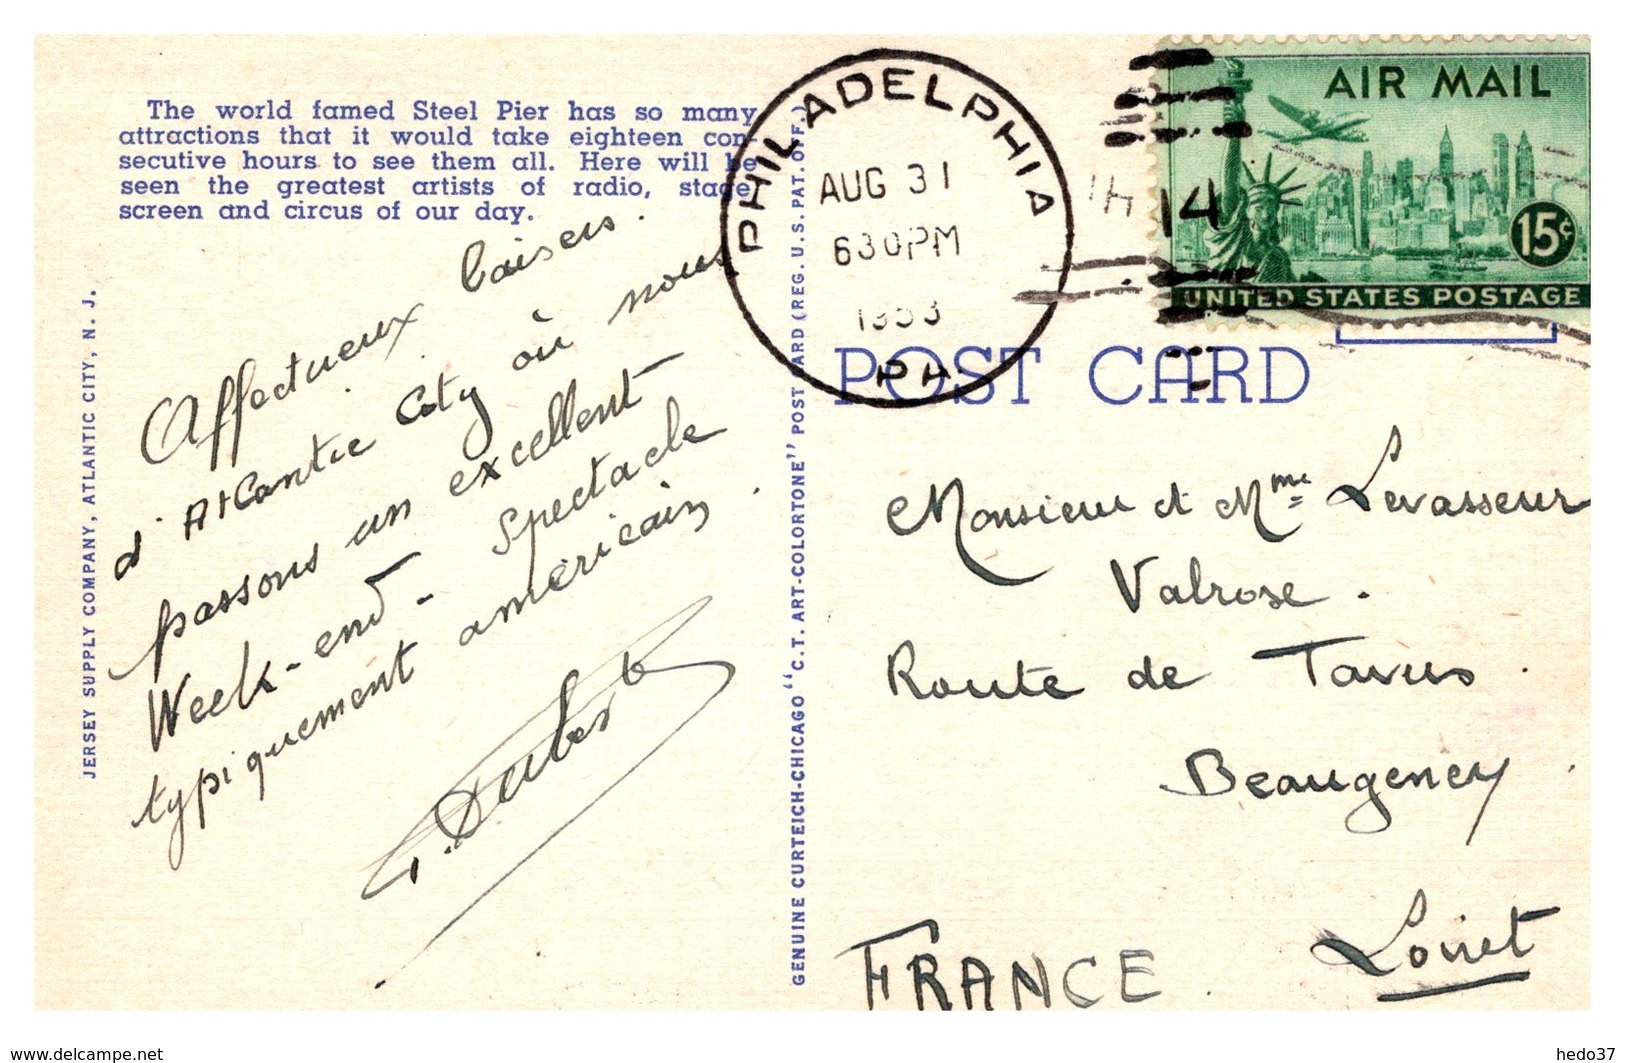 The world famed Steel Pier has so many
attractions that it would take eighteen con-
secutive hours to see them all. Here will be
seen the greatest artists of radio, stage
screen and circus of our day.
Affectueux baisers.
d'Atlantic City où nous
passons un excellent
Week-end - Spectacle
typiquement américain.
JERSEY SUPPLY COMPANY, ATLANTIC CITY, N. J.
GENUINE CURTEICH-CHICAGO "C.T. ART-COLORTONE" POST CARD (REG. U.S. PAT. OFF.)
PHILADELPHIA
AUG 31
630PM
1953
PA
14
AIR MAIL
15¢
UNITED STATES POSTAGE
POST CARD
Monsieur et Mme Levasseur
Valrose.
Route de Tavers.
Beaugency
Loiret
FRANCE.
www.delcampe.net
hedo37